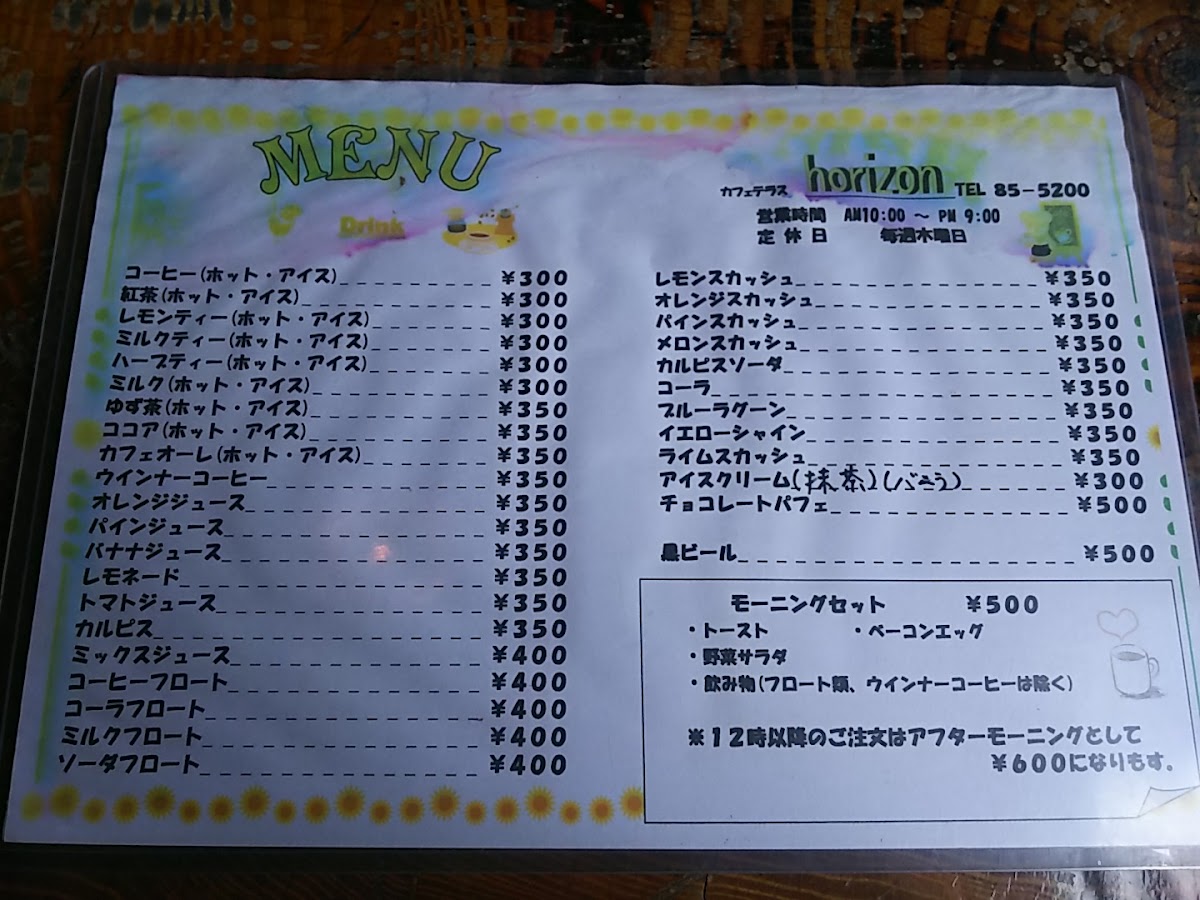 MENU
Drink
カフェテラス horizon TEL 85-5200
営業時間 AM10:00 ～ PM 9:00
定休日 毎週木曜日
コーヒー(ホット・アイス)_________¥300
紅茶(ホット・アイス)___________¥300
レモンティー(ホット・アイス)_______¥300
ミルクティー(ホット・アイス)_______¥300
ハーブティー(ホット・アイス)_______¥300
ミルク(ホット・アイス)__________¥300
ゆず茶(ホット・アイス)__________¥350
ココア(ホット・アイス)__________¥350
カフェオーレ(ホット・アイス)_______¥350
ウインナーコーヒー____________¥350
オレンジジュース_____________¥350
パインジュース______________¥350
バナナジュース______________¥350
レモネード________________¥350
トマトジュース______________¥350
カルピス_________________¥350
ミックスジュース_____________¥400
コーヒーフロート_____________¥400
コーラフロート______________¥400
ミルクフロート______________¥400
ソーダフロート______________¥400
レモンスカッシュ_____________¥350
オレンジスカッシュ____________¥350
パインスカッシュ_____________¥350
メロンスカッシュ_____________¥350
カルピスソーダ______________¥350
コーラ__________________¥350
ブルーラグーン______________¥350
イエローシャイン_____________¥350
ライムスカッシュ_____________¥350
アイスクリーム(抹茶)(バニラ)______¥300
チョコレートパフェ____________¥500
黒ビール_________________¥500
モーニングセット ¥500
・トースト ・ベーコンエッグ
・野菜サラダ
・飲み物(フロート類、ウインナーコーヒーは除く)
※12時以降のご注文はアフターモーニングとして
¥600になりもす。